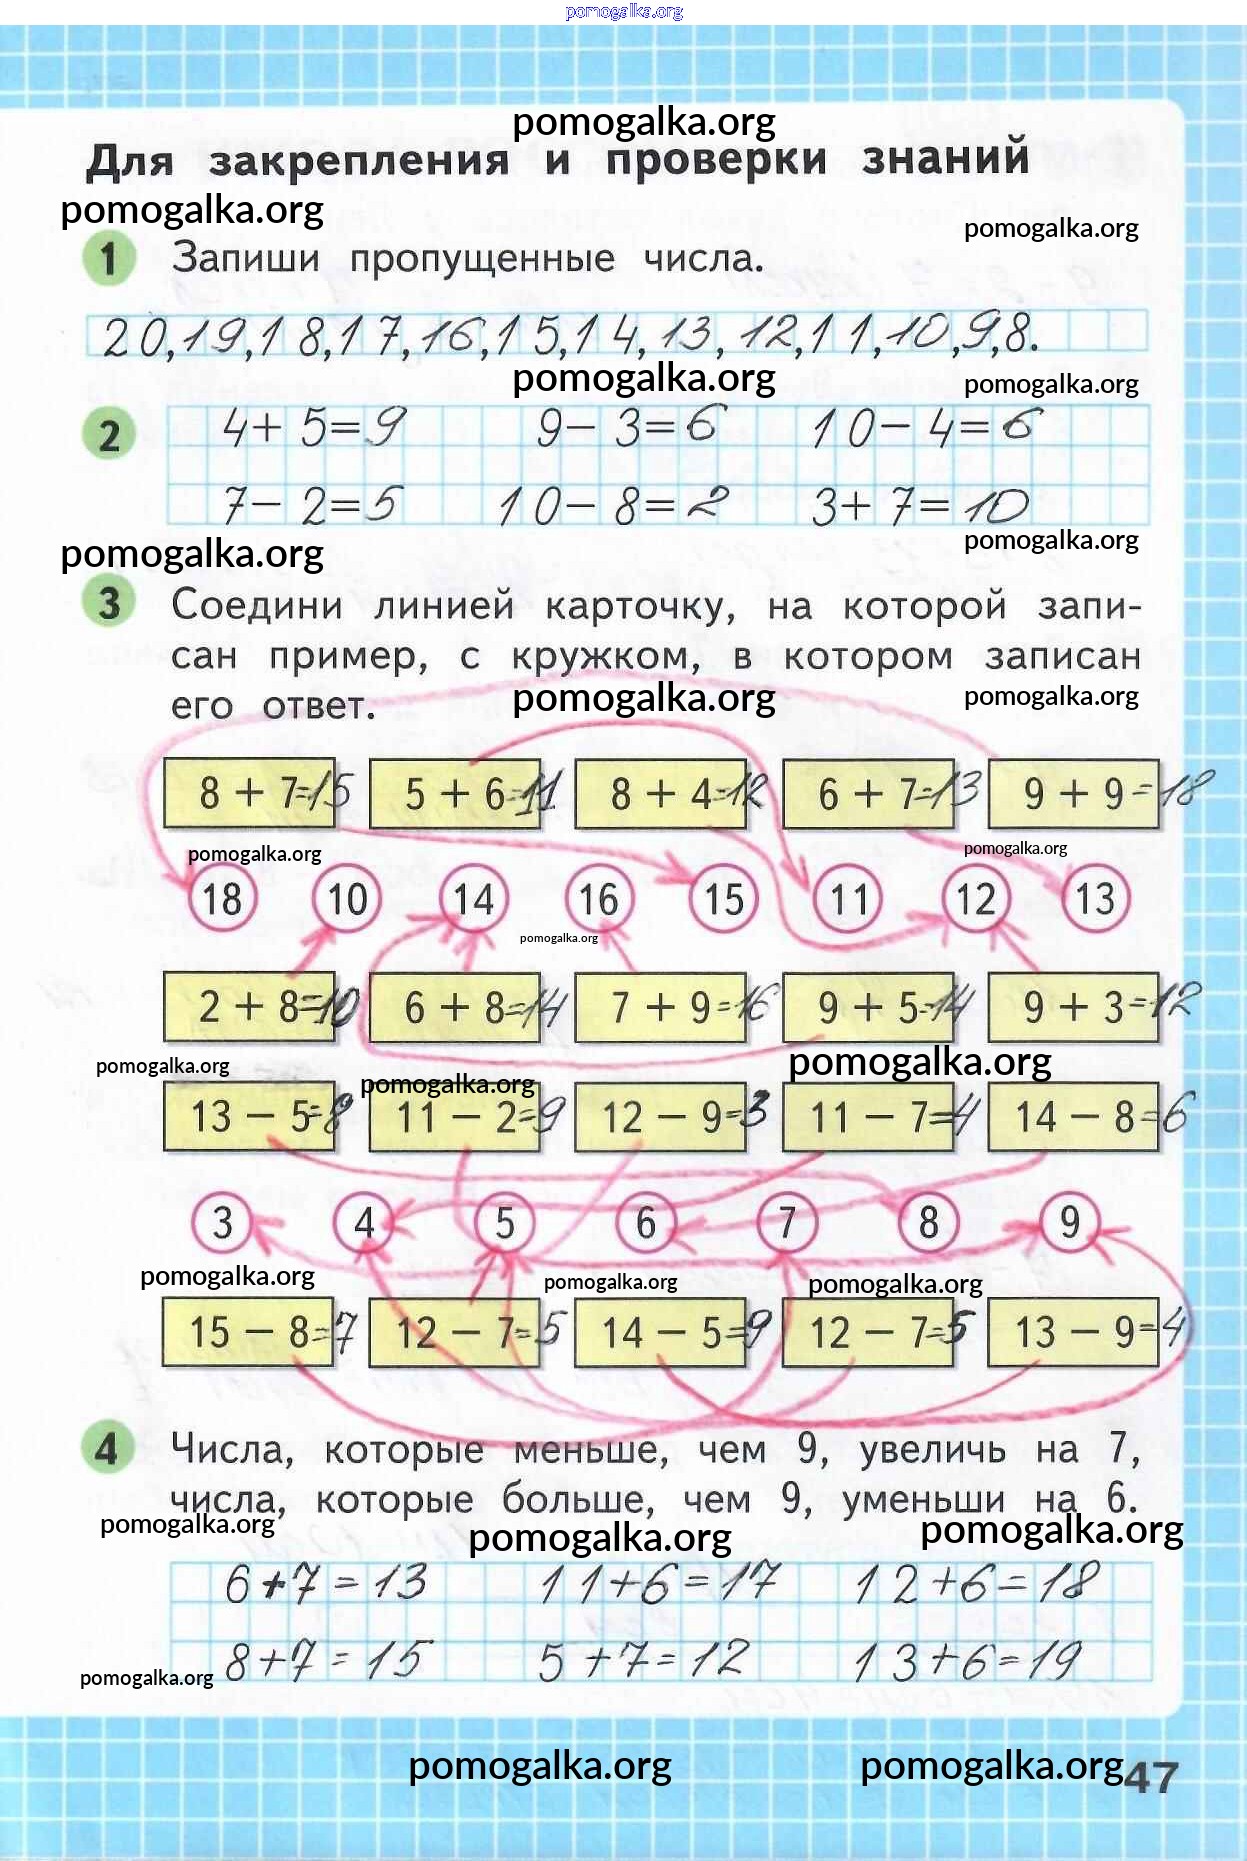 pomogalka.org
pomogalka.org
Для закрепления и проверки знаний
pomogalka.org
pomogalka.org
1 Запиши пропущенные числа.
20,19,18,17,16,15,14,13,12,11,10,9,8.
pomogalka.org pomogalka.org
2 4+5=9 9-3=6 10-4=6
7-2=5 10-8=2 3+7=10
pomogalka.org pomogalka.org
3 Соедини линией карточку, на которой запи-
сан пример, с кружком, в котором записан
его ответ.
pomogalka.org pomogalka.org
8 + 7=15 5 + 6=11 8 + 4=12 6 + 7=13 9 + 9=18
pomogalka.org pomogalka.org
18 10 14 16 15 11 12 13
pomogalka.org
2 + 8=10 6 + 8=14 7 + 9=16 9 + 5=14 9 + 3=12
pomogalka.org pomogalka.org pomogalka.org
13 − 5=8 11 − 2=9 12 − 9=3 11 − 7=4 14 − 8=6
3 4 5 6 7 8 9
pomogalka.org pomogalka.org pomogalka.org
15 − 8=7 12 − 7=5 14 − 5=9 12 − 7=5 13 − 9=4
4 Числа, которые меньше, чем 9, увеличь на 7,
числа, которые больше, чем 9, уменьши на 6.
pomogalka.org pomogalka.org pomogalka.org
6+7=13 11+6=17 12+6=18
8+7=15 5+7=12 13+6=19
pomogalka.org
pomogalka.org pomogalka.org 47